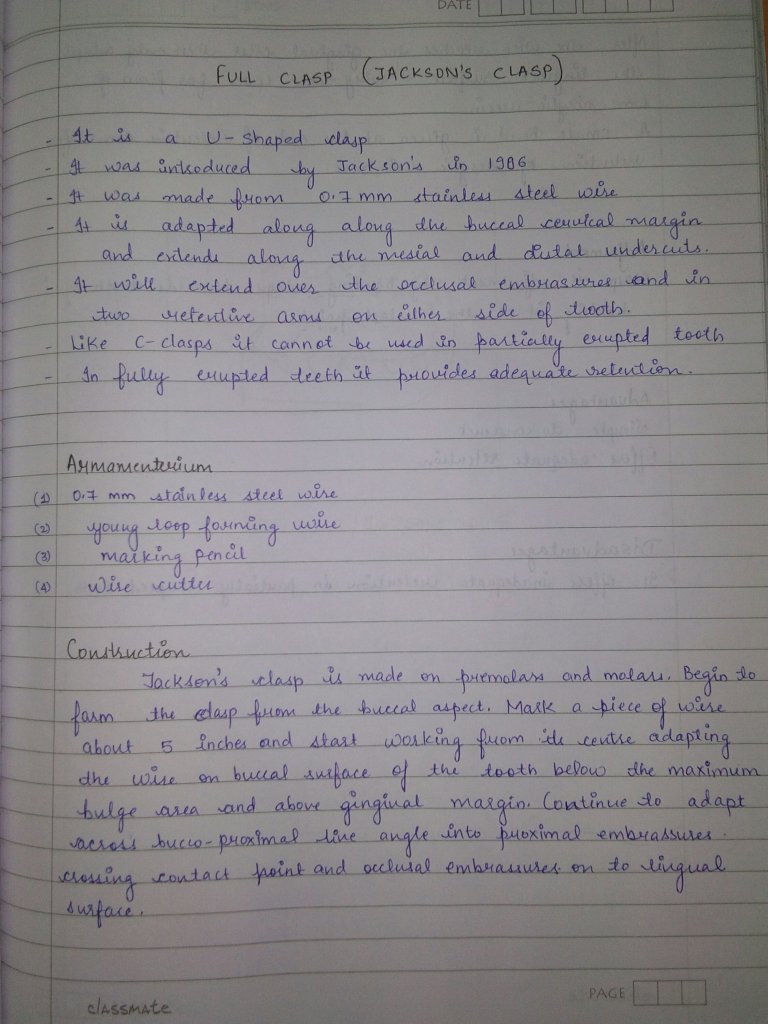 DATE
FULL CLASP (JACKSON'S CLASP)
- It is a U-shaped clasp
- It was introduced by Jackson's in 1906
- It was made from 0.7 mm stainless steel wire
- It is adapted along along the buccal cervical margin
and extends along the mesial and distal undercuts.
- It will extend over the occlusal embrasures and in
two retentive arms on either side of tooth.
- Like C-clasps it cannot be used in partially erupted tooth
- In fully erupted teeth it provides adequate retention.
Armamenterium
(1) 0.7 mm stainless steel wire
(2) young loop forming wire
(3) marking pencil
(4) wire cutter
Construction
Jackson's clasp is made on premolars and molars. Begin to
form the clasp from the buccal aspect. Mark a piece of wire
about 5 inches and start working from its centre adapting
the wire on buccal surface of the tooth below the maximum
bulge area and above gingival margin. Continue to adapt
across bucco-proximal line angle into proximal embrassures.
crossing contact point and occlusal embrassures on to lingual
surface.
PAGE
classmate